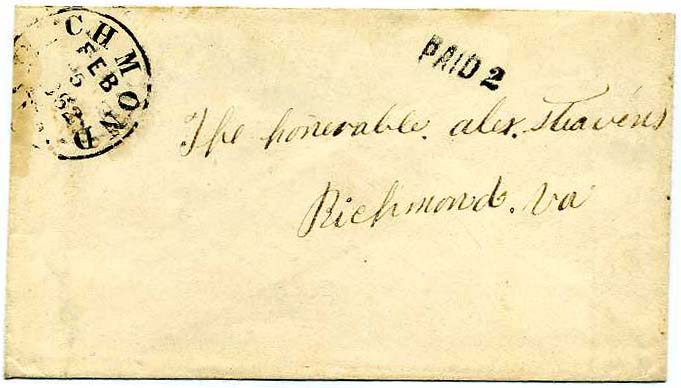 CHMOND
FEB
5
1862
PAID 2
The honerable. alex. Steavens
Richmond. Va